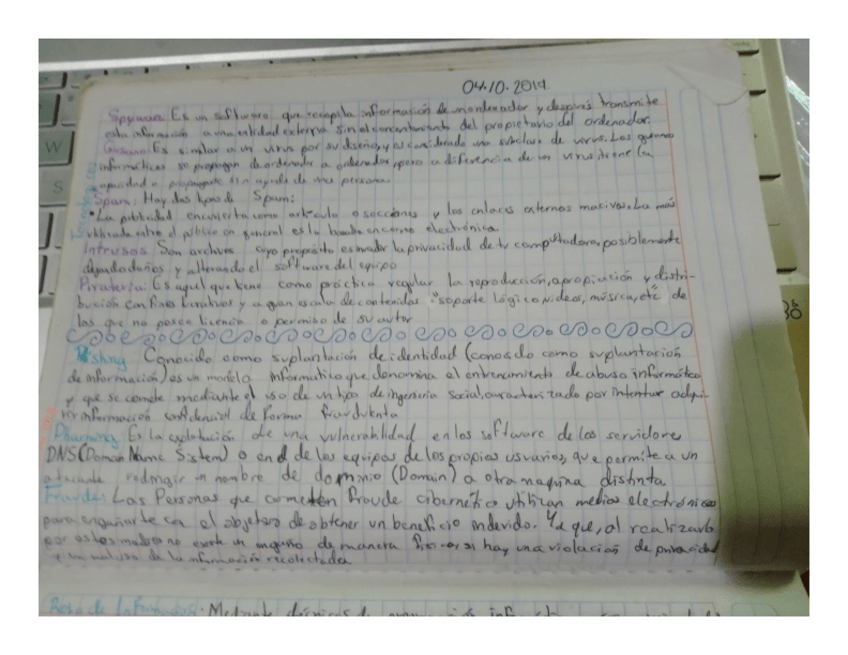 04.10.2019
Spyware: Es un software que recopila información de un ordenador y después transmite
esta información a una entidad externa sin el conocimiento del propietario del ordenador.
Gusano: Es similar a un virus por su diseño, y es considerado una subclase de virus. Los gusanos
informáticos se propagan de ordenador a ordenador, pero a diferencia de un virus, tiene la
capacidad a propagarse sin ayuda de una persona.
Spam: Hay dos tipos de Spam:
• La publicidad encubierta como artículo o secciones y los enlaces externos masivos. La más
utilizada entre el público en general es la basada en correo electrónico.
Intrusos Son archivos cuyo propósito es invadir la privacidad de tu computadora, posiblemente
dejando daños y alterando el software del equipo
Piratería: Es aquel que tiene como práctica regular la reproducción, apropiación y distri-
bución con fines lucrativos y a gran escala de contenidos "soporte lógico, videos, música, etc de
los que no posee licencia o permiso de su autor
Pishing Conocido como suplantación de identidad (conocido como suplantación
de información) es un modelo informático que denomina el de abuso informático
y que se comete mediante el uso de un tipo de ingeniería social, caracterizado por intentar adqui-
rir información confidencial de forma fraudulenta
Pharming Es la explotación de una vulnerabilidad en los software de los servidores
DNS (Domain Name System) o en el de los equipos de los propios usuarios, que permite a un
atacante redirigir un nombre de dominio (Domain) a otra maquina distinta.
Fraude: Las Personas que cometen fraude cibernético utilizan medios electrónicos
para engañarte con el objetivo de obtener un beneficio indevido. Ya que, al realizarlo
por estos medios no existe un engaño de manera si hay una violación de privacidad
y un mal uso de la información recolectada
Robo de Información: Mediante técnicas de